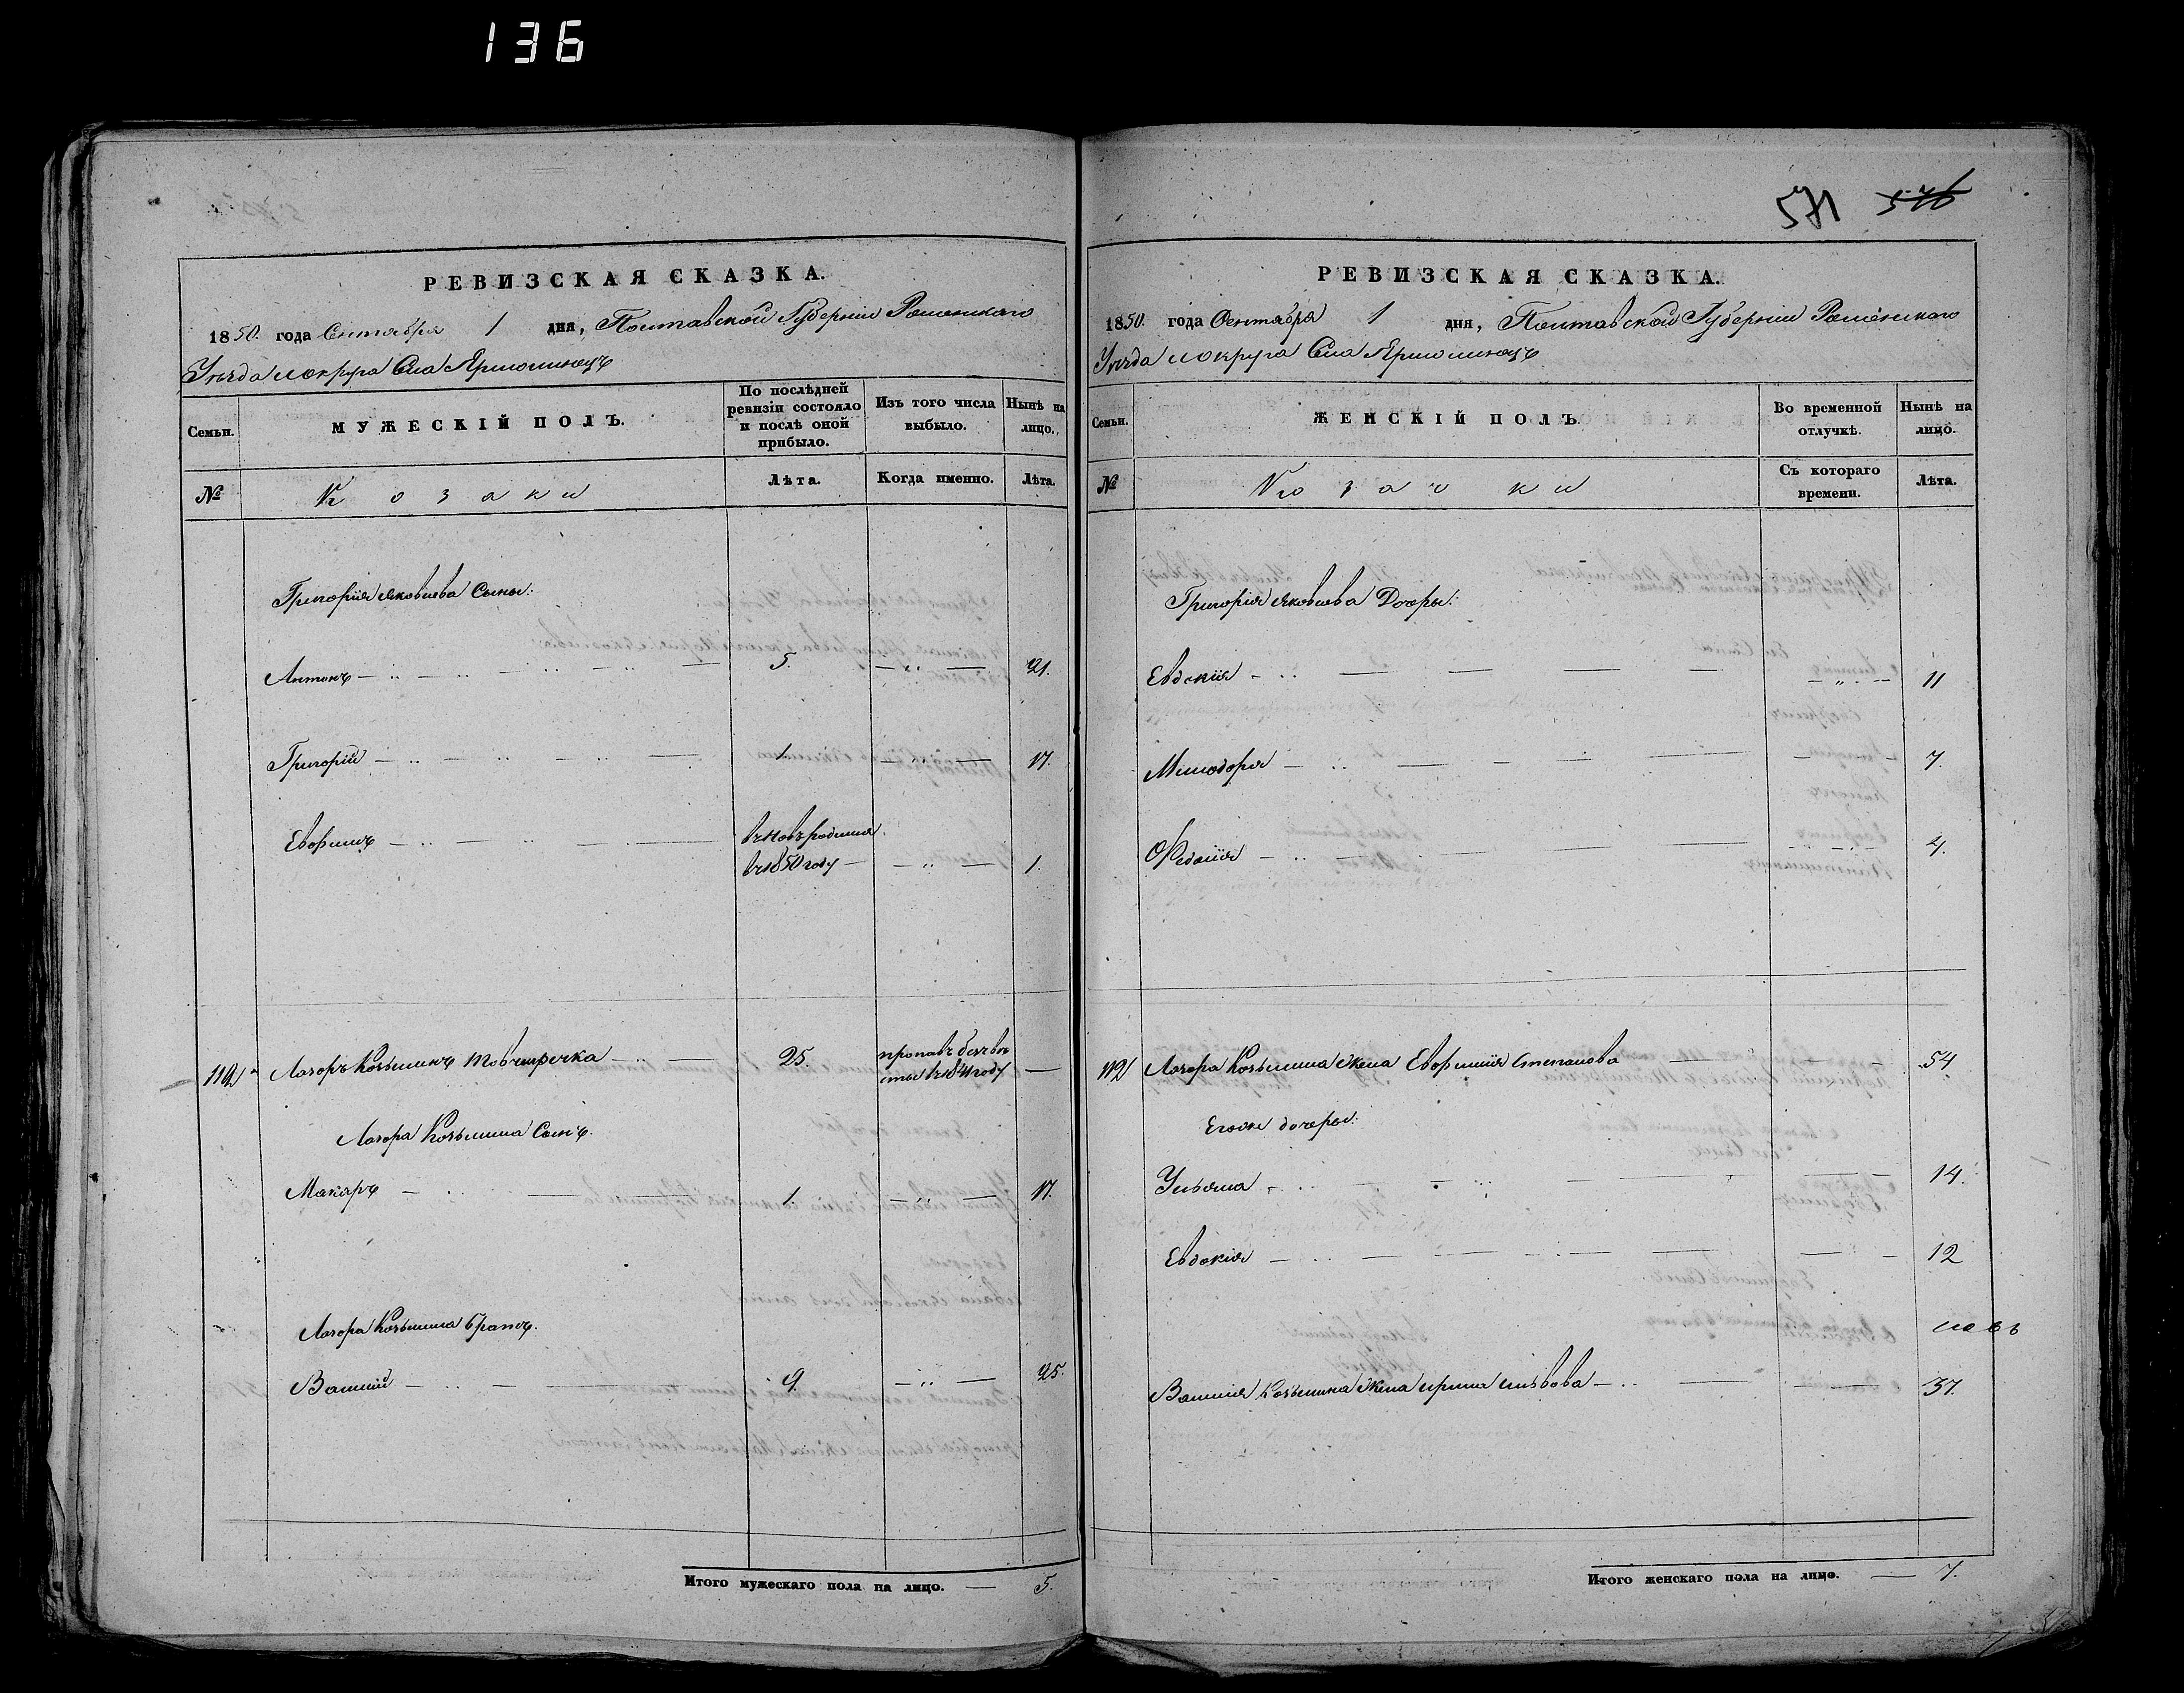 136
РЕВИЗСКАЯ СКАЗКА.
1850. года Сентября 1 дня, Полтавской Губерніи Роменскаго
Уѣзда и округа Села Ярмолинецъ
Семьи. МУЖЕСКІЙ ПОЛЪ. По послѣдней ревизіи состояло и послѣ оной прибыло. Изъ того числа выбыло. Нынѣ на лицо.
№ Козаки Лѣта. Когда именно. Лѣта.
Григорія Яковлева Сыны:
Антонъ — 5. — 21.
Григорій — 1. — 17.
Евфимъ — вновь родился
в 1850 году — 1.
112 Лазоръ Козьминъ Товчиречка — 25. пропавъ безъ вѣ
сты в 1841 году —
Лазора Козьмина Сынъ.
Макаръ — 1. — 17.
Лазора Козьмина братъ.
Василій — 9. — 25.
Итого мужескаго пола на лицо. — 5.
571 576
РЕВИЗСКАЯ СКАЗКА.
1850. года Сентября 1 дня, Полтавской Губерніи Роменскаго
Уѣзда и округа Села Ярмолинецъ
Семьи. ЖЕНСКІЙ ПОЛЪ. Во временной отлучкѣ. Нынѣ на лицо.
№ Козачки Съ котораго времени. Лѣта.
Григорія Яковлева Дочеры:
Евдокія — 11
Милодора — 7.
Федосія — 4.
112 Лазора Козьмина Жена Евфимія Степанова — 54
Егоже дочеры:
Ульяна — 14.
Евдокія — 12
Василія Козьмина Жена Ирина — 37.
Итого женскаго пола на лицо. — 7.